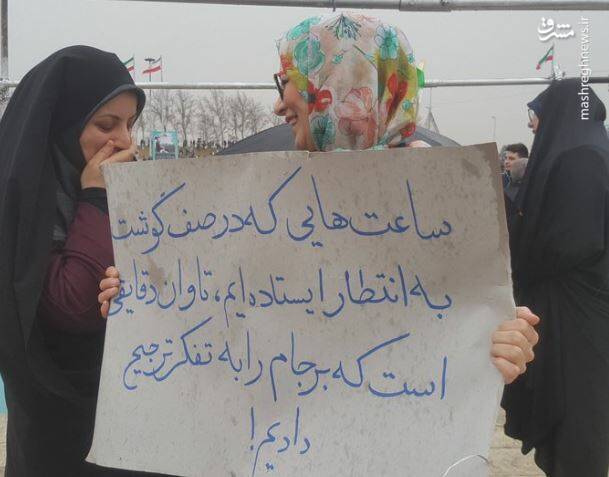 ساعت هایی که در صف گوشت
به انتظار ایستاده ایم، تاوان دقایقی
است که برجام را به تفکر ترجیح
دادیم!
مشرق
mashreghnews.ir